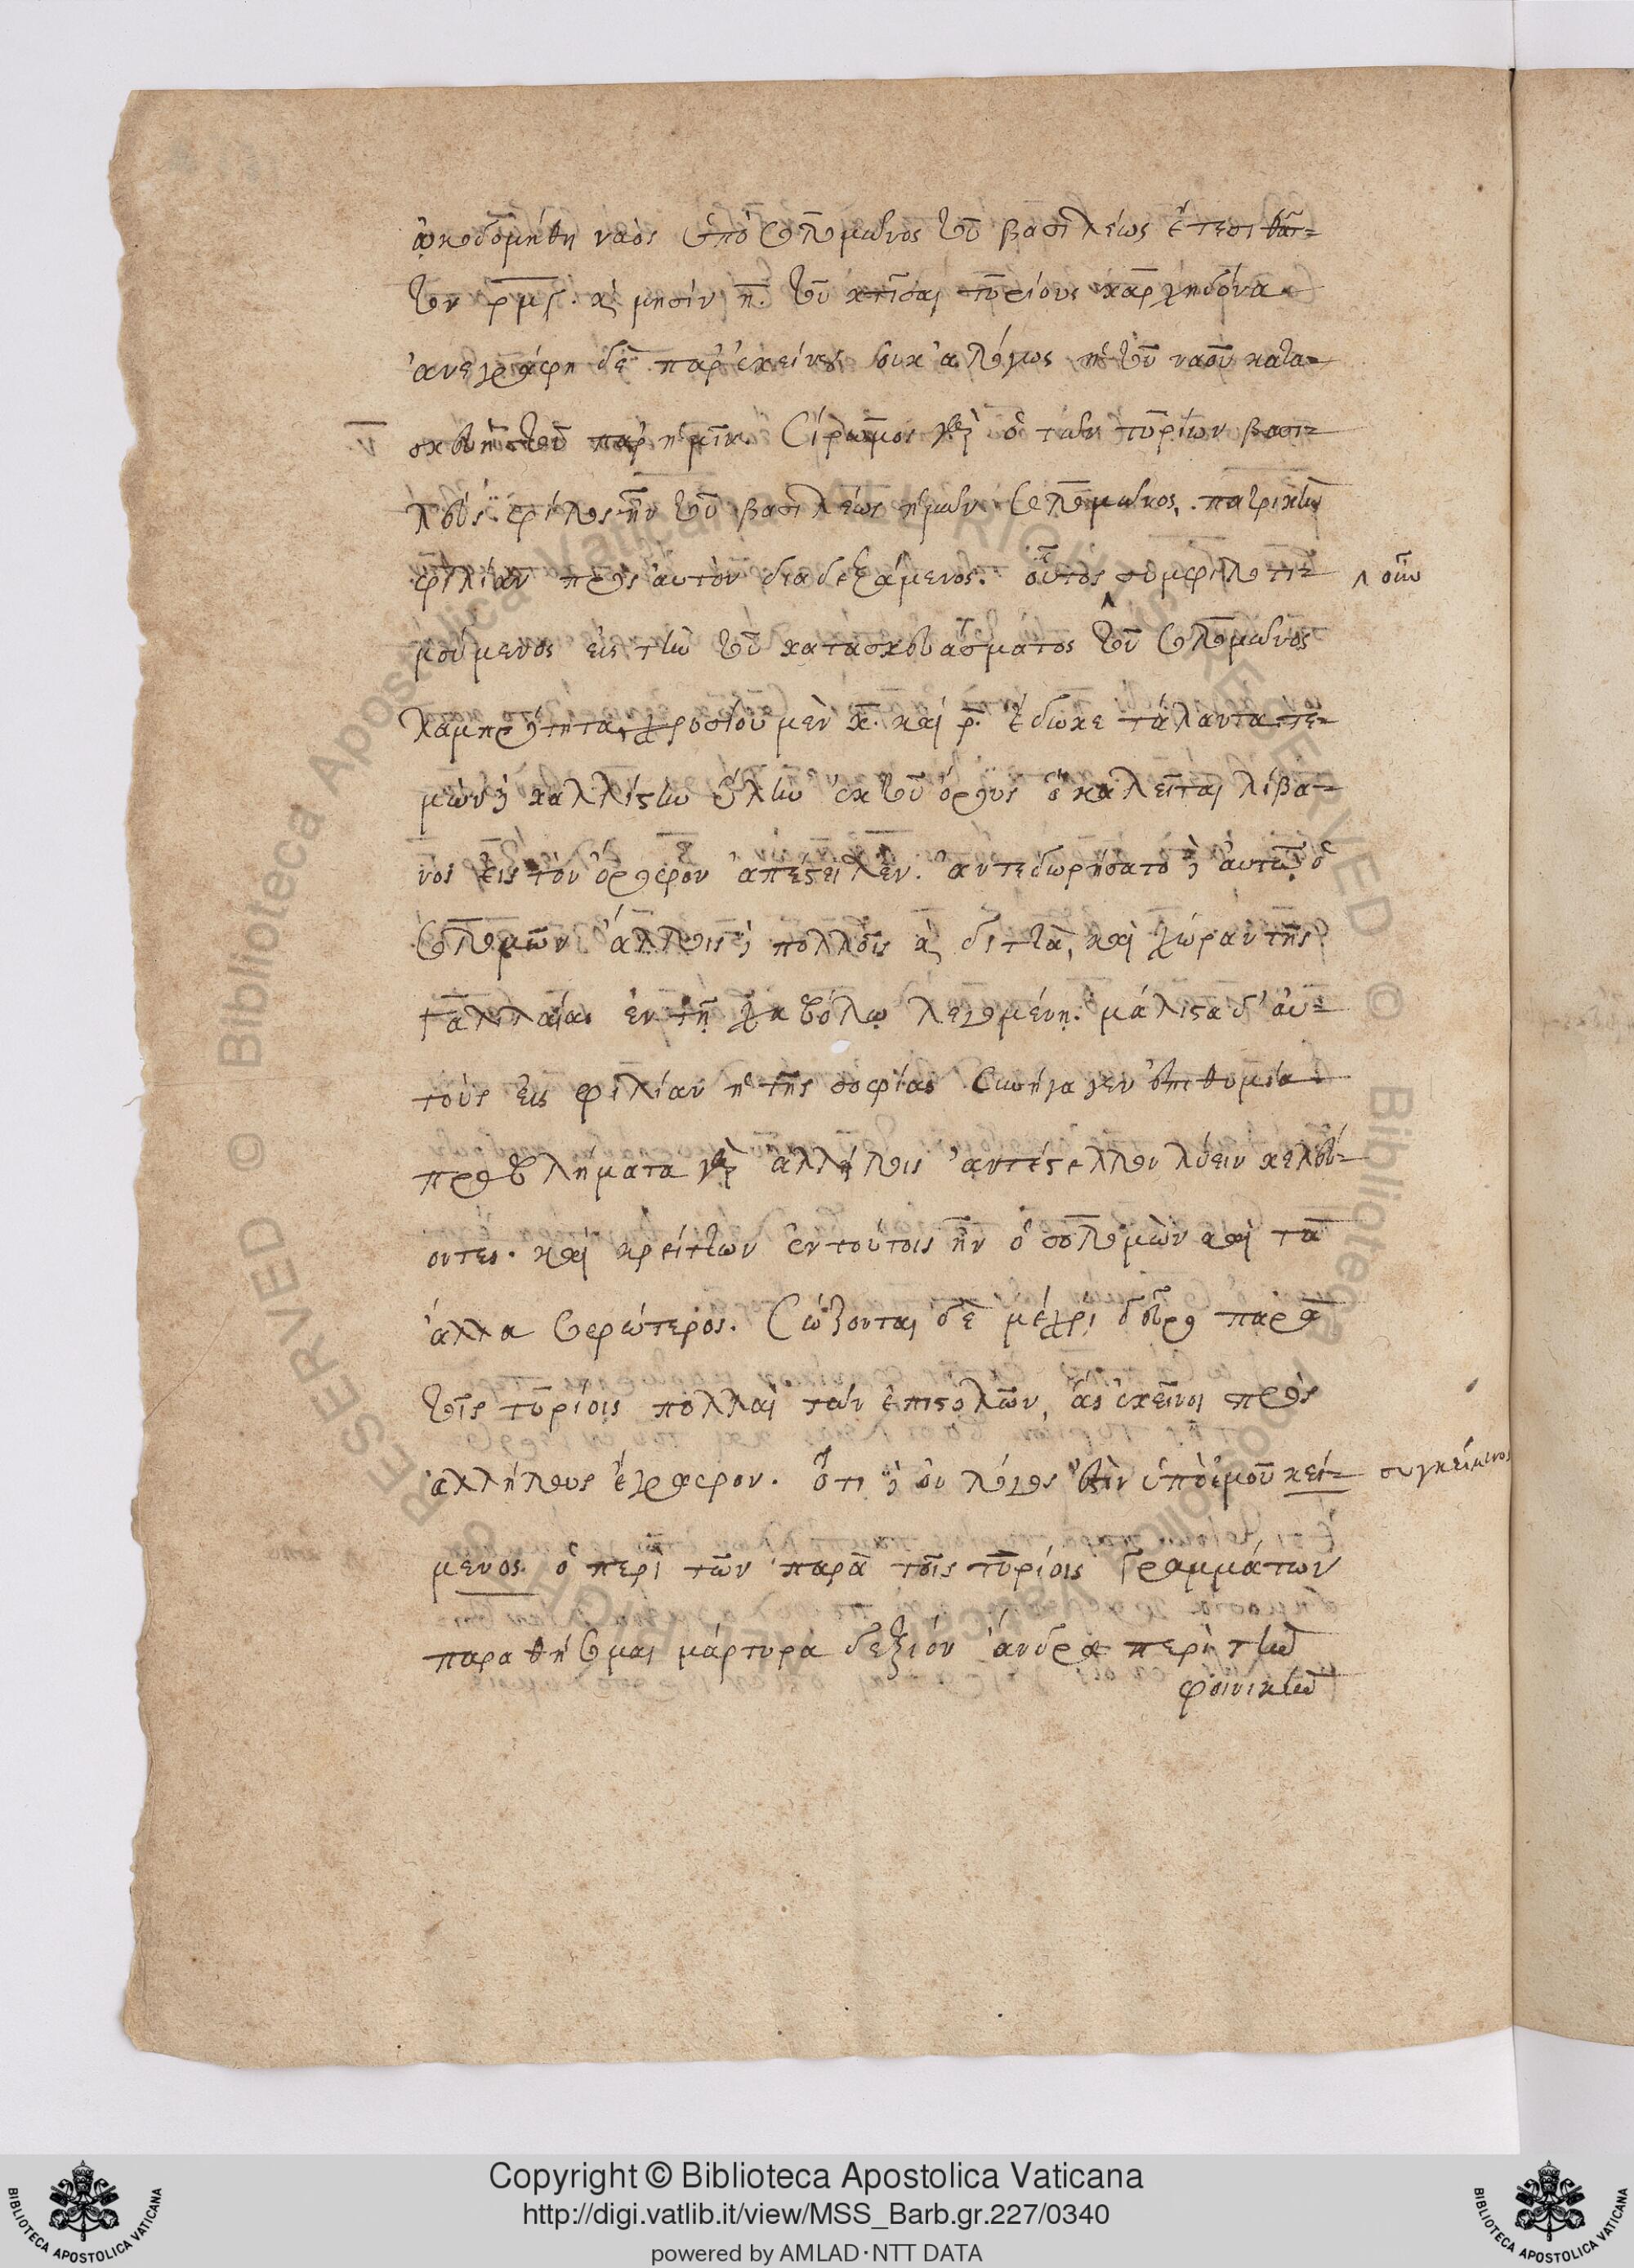 ᾠκοδομήθη ναὸς ὑπὸ σολομῶνος τοῦ βασιλέως ἔτεσι θᾶτ=
τον ρμγ. καὶ μησὶν η. τοῦ κτίσαι τυρίους καρχηδόνα
ἀνεγράφη δὲ παρ' ἐκείνοις οὐκ ἀλόγως ἡ τοῦ ναοῦ κατα=
σκευὴ τοῦ παρ' ἡμῖν. Σίραμος γὰρ ὁ τῶν τυρίων βασι=
λεὺς. φίλος ἦν τοῦ βασιλέως ἡμῶν σολομῶνος. πατρικὴν
φιλίαν πρὸς αὐτὸν διαδεξάμενος. οὗτος συμφιλοτι=
οὖν
μούμενος εἰς τὴν τοῦ κατασκευάσματος τοῦ σολομῶνος
λαμπρότητα, χρυσίου μὲν κ. καὶ ρ. ἔδωκε τάλαντα τε=
μὼν δὲ καλλίστην ὕλην ἐκ τοῦ ὄρους ὃ καλεῖται λίβα=
νος εἰς τὸν ὄροφον ἀπέστειλεν. ἀντεδωρήσατο δὲ αὐτῷ ὁ
σολομῶν ἄλλοις δὲ πολλοῖς καὶ διττὰ, καὶ χώραν τῆς
Γαλιλαίας ἐν τῇ χαβόλῳ λεγομένῃ. μάλιστα δ' αὐ=
τοὺς εἰς φιλίαν ἡ τῆς σοφίας συνήγαγεν ἐπιθυμία
προβλήματα γὰρ ἀλλήλοις ἀντέστελλον λύειν κελεύ=
οντες. καὶ κρείττων ἐν τούτοις ἦν ὁ σολομὼν καὶ τὰ
ἄλλα σοφώτερος. Σώζονται δὲ μέχρι δεῦρο παρὰ
τοῖς τυρίοις πολλαὶ τῶν ἐπιστολῶν, ἃς ἐκεῖνοι πρὸς
ἀλλήλους ἔγραφον. ὅτι δὲ οὐ λόγος ἐστὶν ὑπ' ἐμοῦ κεί=
συγκείμενος
μενος ὁ περὶ τῶν παρὰ τοῖς τυρίοις Γραμμάτων
παραθήσομαι μάρτυρα δεξιὸν ἄνδρα περὶ τὴν
φοινικὴν
Copyright © Biblioteca Apostolica Vaticana
http://digi.vatlib.it/view/MSS_Barb.gr.227/0340
powered by AMLAD·NTT DATA